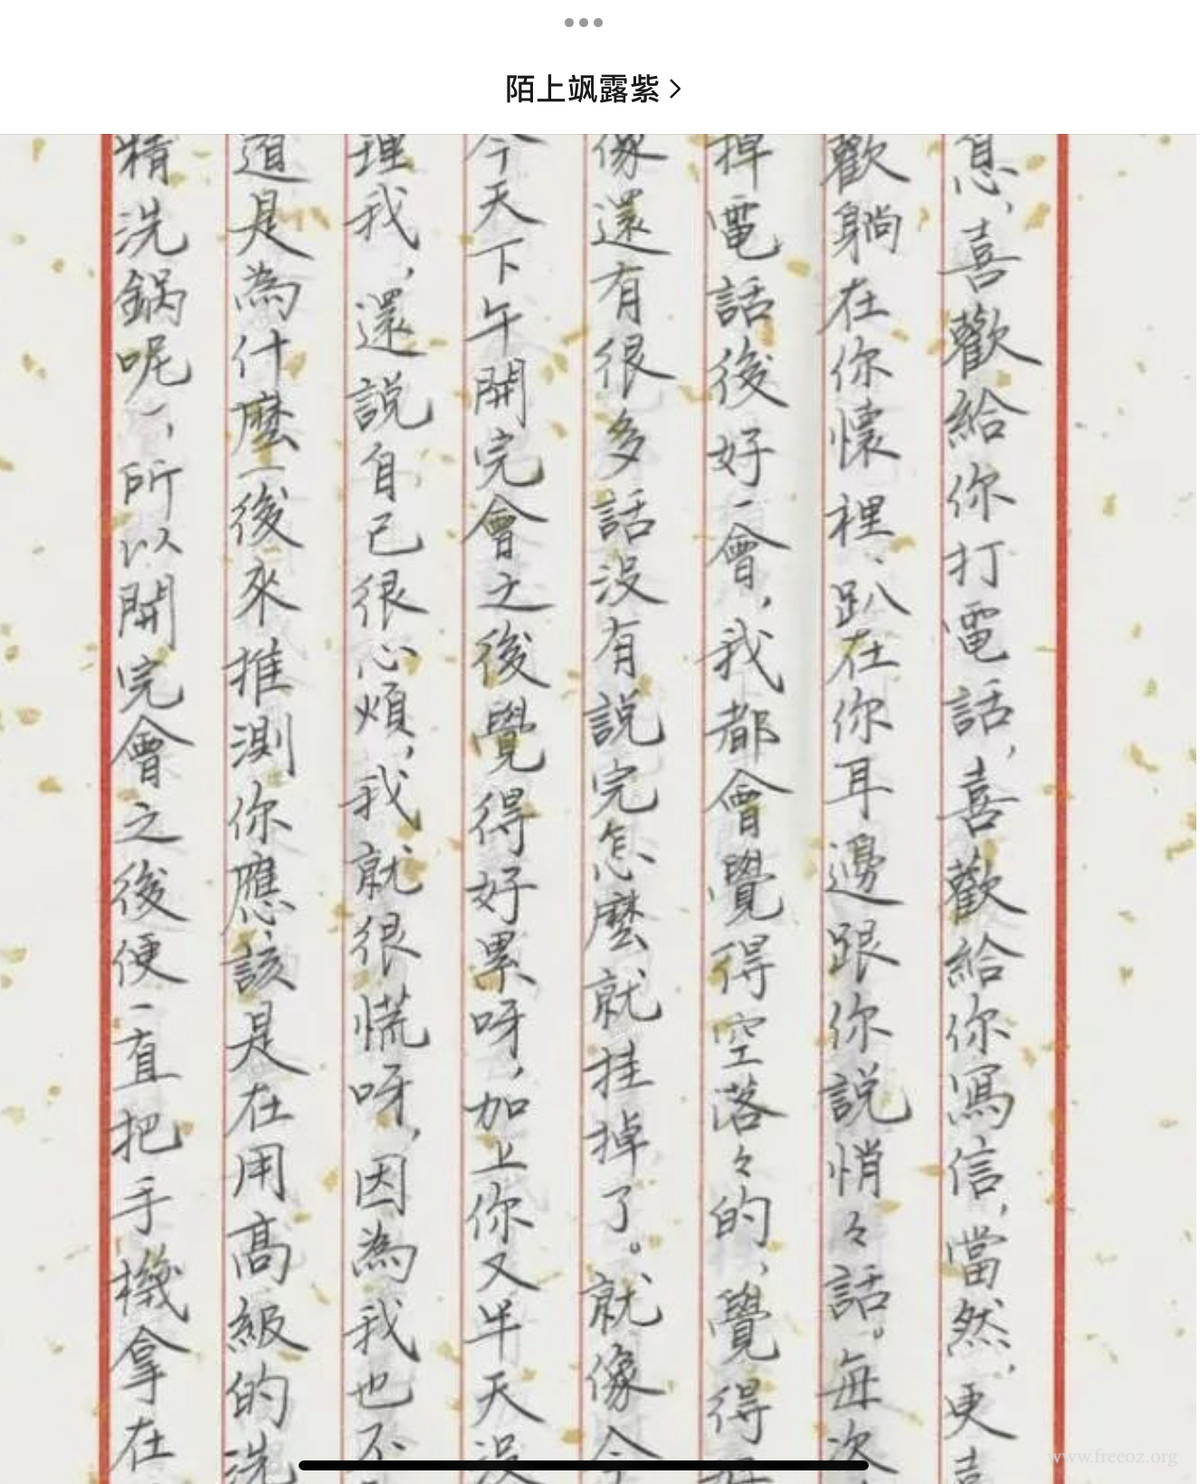 陌上飒露紫
息,喜歡給你打電話,喜歡給你寫信,當然,更喜
歡躺在你懷裡、趴在你耳邊跟你說悄々話。每次
掉電話後好一會,我都會覺得空落々的,覺得
像還有很多話没有説完怎麼就挂掉了。就像今
今天下午開完會之後覺得好累呀,加上你又半天没
理我,還說自己很心煩,我就很慌呀,因為我也不
道是為什麼(後來推測你應該是在用高級的洗
精洗鍋呢),所以開完會之後便一直把手機拿在
www.freeoz.org